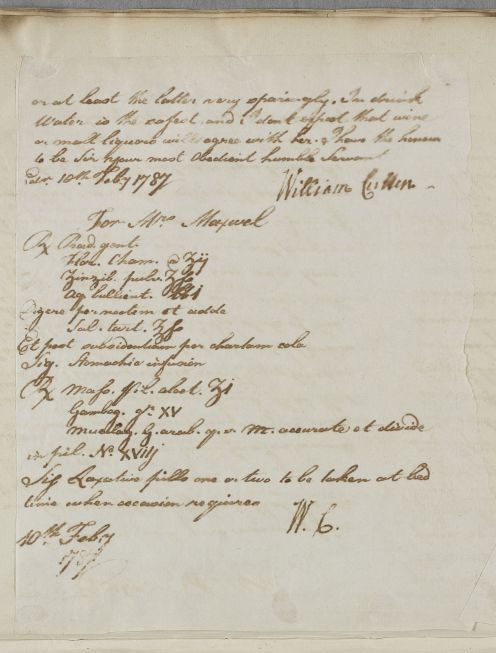 or at least the latter very sparingly. In drink
Water is the safest and I dont expect that wine
or malt liquors will agree with her. I have the honour
to be Sir your most Obedient humble Servant
Edr. 10th Feby 1787 William Cullen
For Mrs Maxwel
Rx Rad. gent.
Flor. Cham. a ʒij
Zinzib. pulv. ʒſs
Aq bullient. ℔j
Digere per noctem et adde
Sal. tart. ʒſs
Et post subsidentiam per chartam cola
Sig. Stomachic infusion
Rx Mass. pil. aloet. ʒi
Gambog. gr. XV
Mucilag. G. arab. q. s. M. accurate et divide
in pil. No XViij
Sig Laxative pills one or two to be taken at bed
time when occasion requires
W. C.
10th Feby
1787